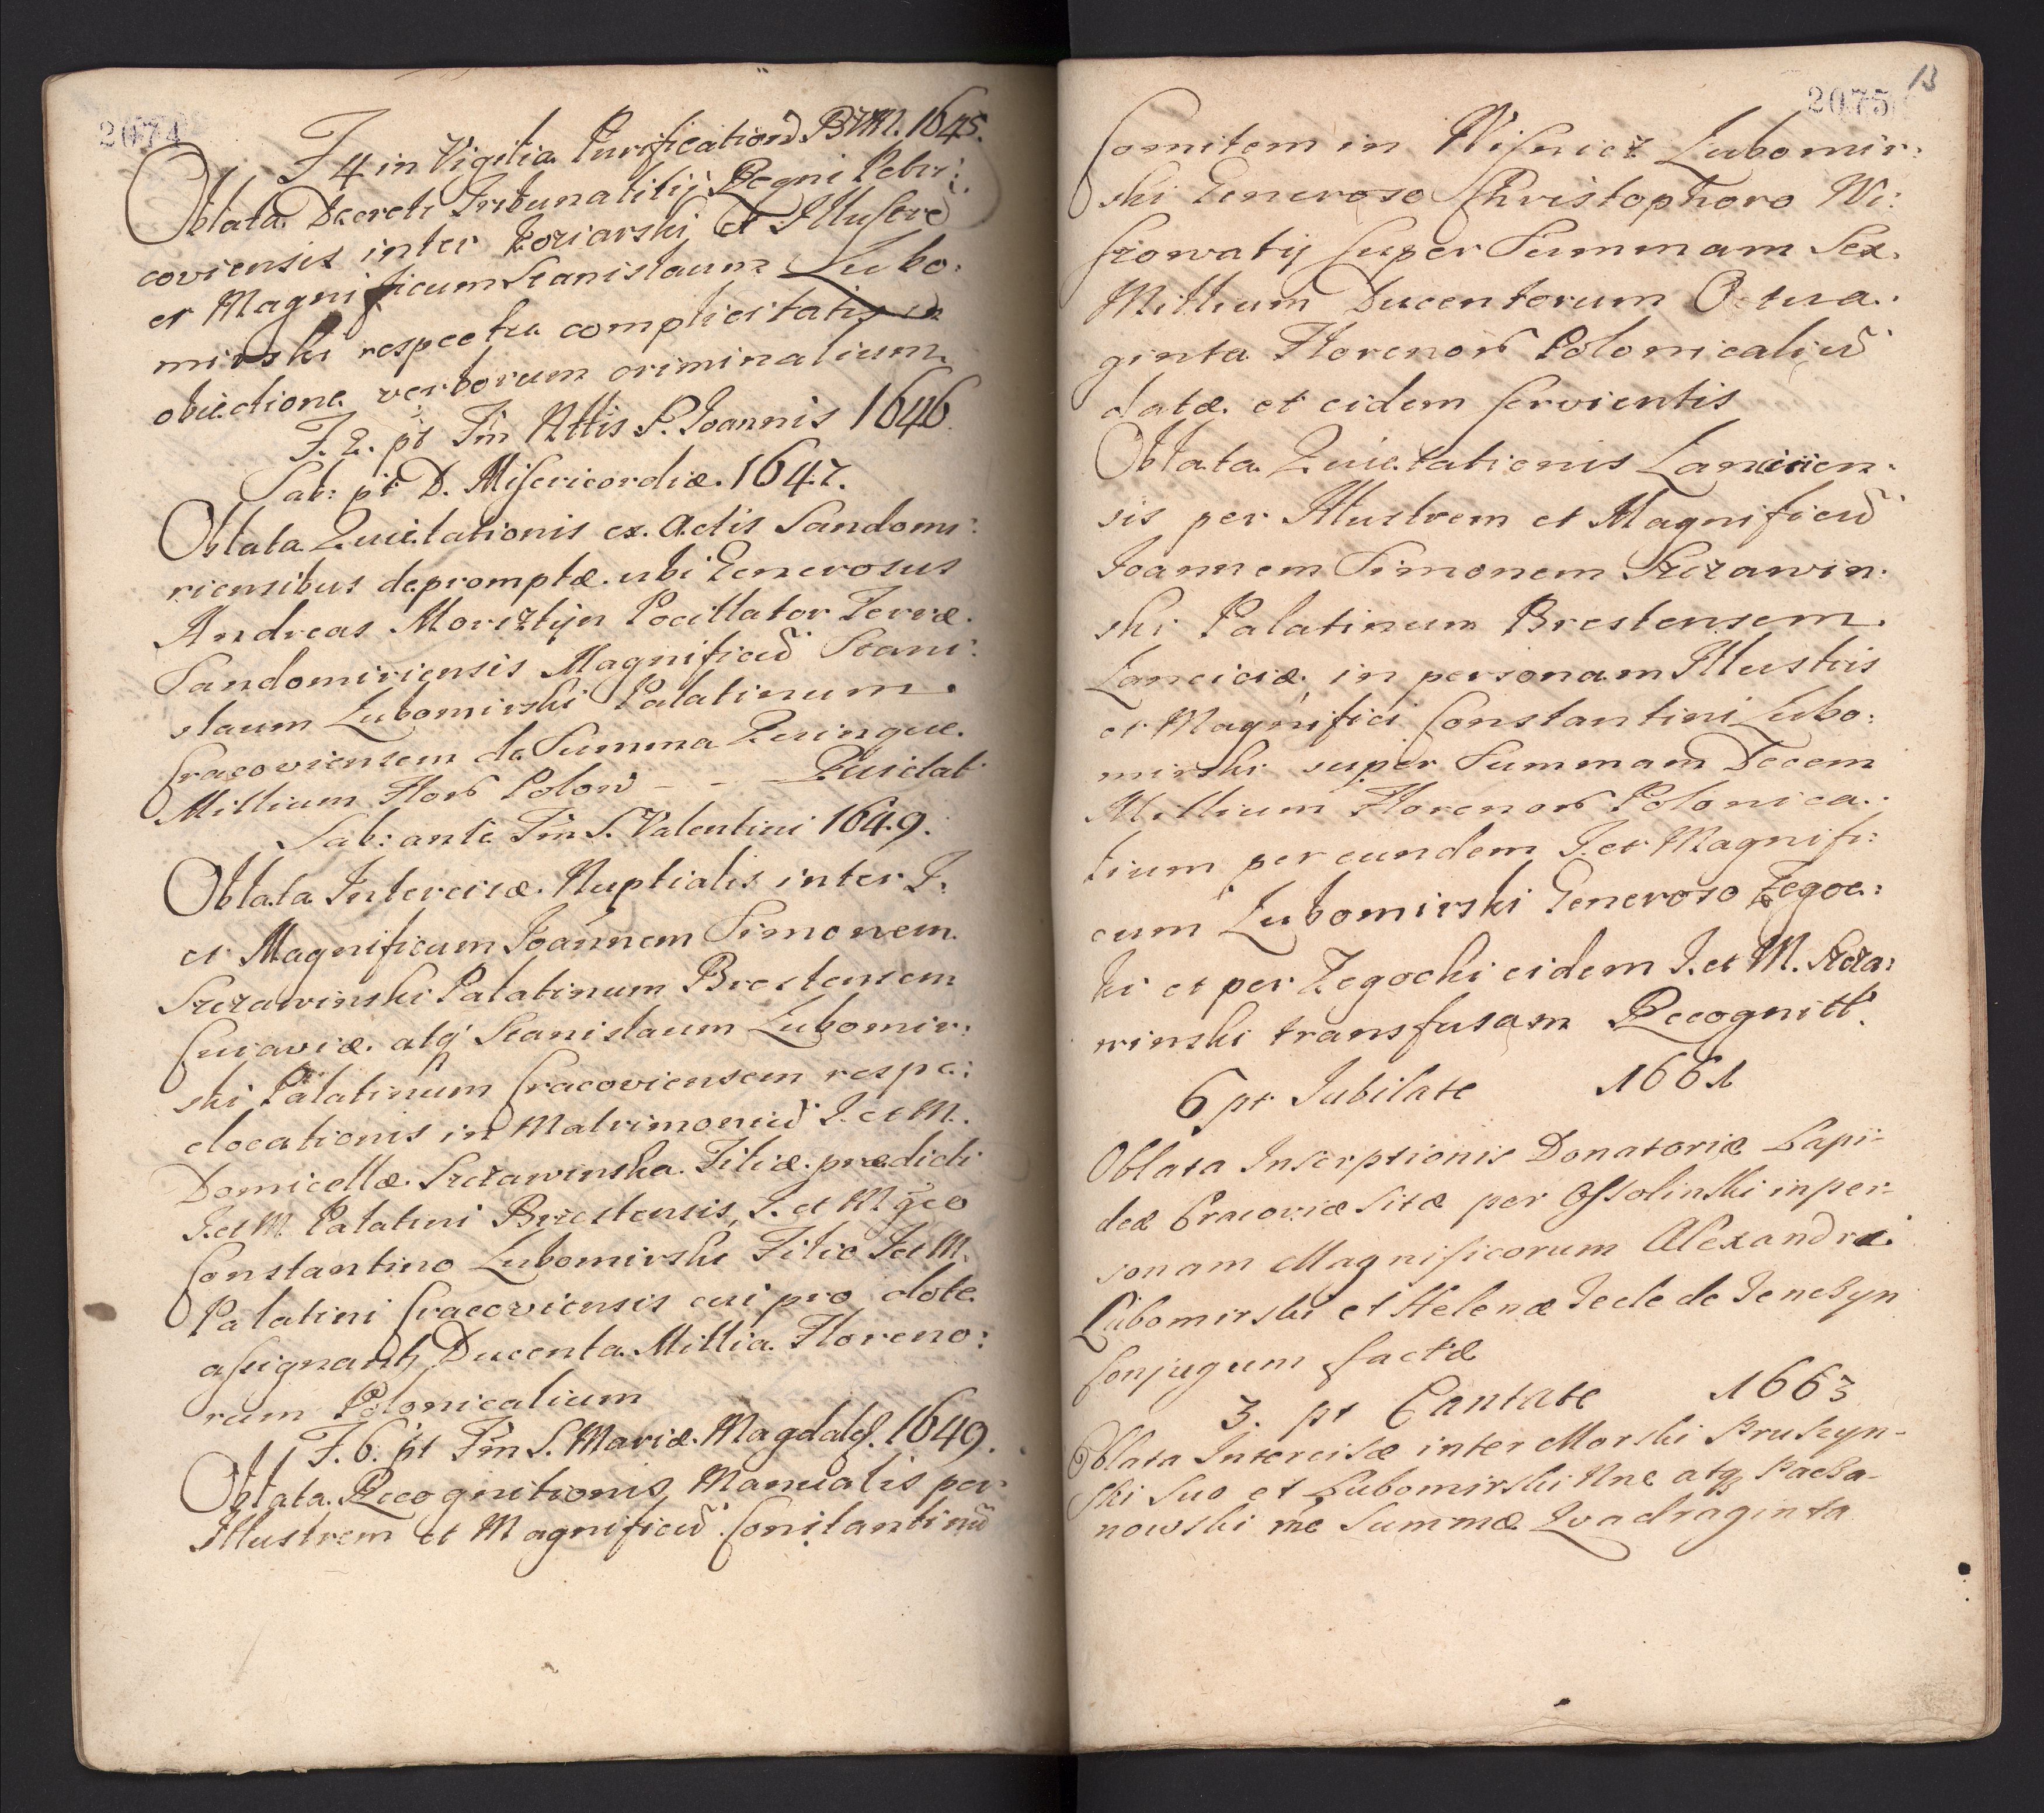 2074
F 4 in Vigilia Purificationis BVM. 1645.
Oblata Decreti Tribunalitij Regni Petri:
coviensis inter Koziarski et Illustre
et Magnificum Stanislaum Lubo:
mirski respectu complicitatis in
obiectione verborum criminalium
F. 2. pt Fm Nttis S. Joannis 1646.
Sab: pt D. Misericordiæ. 1647.
Oblata Quietationis ex Actis Sandomi:
riensibus depromptæ ubi Generosus
Andreas Morsztijn Pocillator Terræ
Sandomiriensis Magnificũ Stani:
slaum Lubomirski Palatinum
Cracoviensem de Summa Quinque
Millium Flor Polon - - Quietat
Sab: ante Fm S. Valentini 1649.
Oblata Intercisæ Nuptialis inter I.
et Magnificum Joannem Simonem
Szczawinski Palatinum Brestensem
Cuiaviæ atq Stanislaum Lubomir:
ski Palatinum Cracoviensem respe:
elocationis in Matrimoniũ I. et M.
Domicellæ Szczawinska Filiæ prædicti
I. et M. Palatini Brzestensis, I. et Mgco
Constantino Lubomirski Filio I et M.
Palatini Cracoviensis cui pro dote
assignant Ducenta Millia Floreno:
rum Polonicalium
F. 6. pt Fm S. Mariæ Magdale. 1649.
Oblata Recognitionis Manualis per
Illustrem et Magnificũ Constantinũ
13
2075
Comitem in Wisnicz Lubomir:
ski Generoso Christophoro Wi:
szowatij super Summam Sex
Millium Ducentorum Octua:
ginta Florenor Polonicaliũ
datæ et eidem servientis
Oblata Quietationis Lancicien:
sis per Illustrem et Magnificũ
Joannem Simonem Szczawin:
ski Palatinum Brestensem
Lanciciæ in personam Illustris
et Magnifici Constantini Lubo:
mirski super Summam Decem
Millium Florenor Polonica:
lium per eundem I. et Magnifi:
cum Lubomirski Generoso Zegoc:
ki et per Zegocki eidem I. et M. Szcza:
winski transfusam Recognitt.
6 pt Jubilate 1661
Oblata Inscrptionis Donatoriæ Lapi-
deæ Cracoviæ sitæ per Ossolinski in per-
sonam Magnificorum Alexandri
Lubomirski et Helenæ Tecle de Tenczyn
Conjugum factæ
3. pt Cantate 1663
Oblata Intercisæ inter Morski Pruszyn-
ski suo et Lubomirski Nne atq Kacza-
nowski ne Summæ Qvadraginta